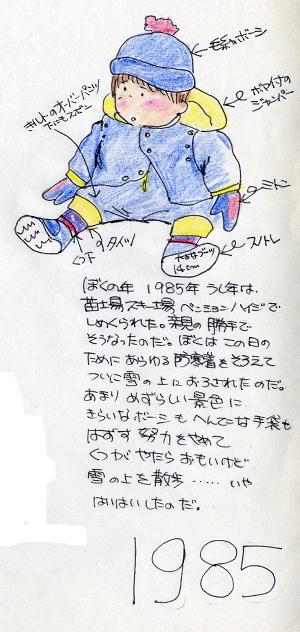 毛糸のボーシ
ボア付の
ジャンパー
キルトのオーバーパンツ
下にもズボン
ミトン
タイツ
くつ下
スノトレ
たまはブーツ
14cm
ぼくの年 1985年 うし年は、
苗場スキー場 ペンションハイジで
しめくられた。親の勝手で
そうなったのだ。ぼくは この日の
ために あらゆる 防寒着を そろえて
ついに 雪の上に おろされたのだ。
あまり めずらしい 景色に
きらいな ボーシも へんてこな 手袋も
はずす 努力を やめて
くつが やたら おもいけど
雪の上を 散歩 ‥‥‥ いや
はいはいしたのだ。
1985